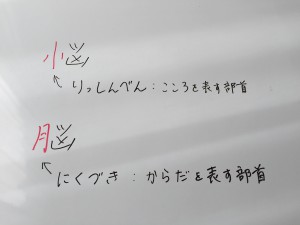 悩
↖ りっしんべん：こころを表す部首
脳
↖ にくづき：からだを表す部首